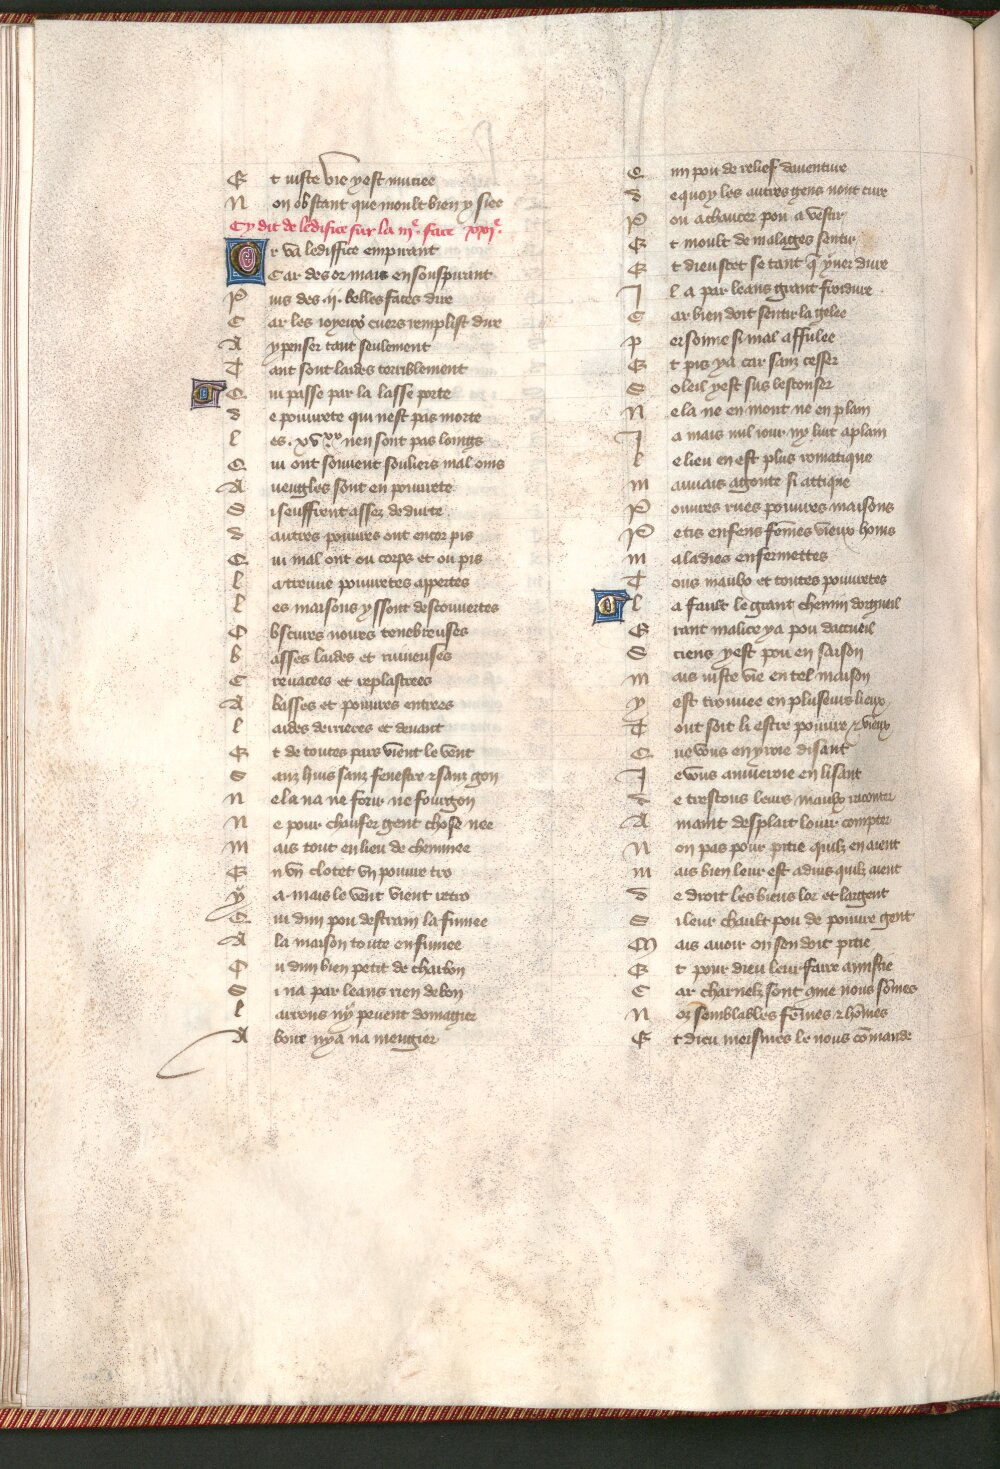 Et iuste vie y est muciee
Non obstant que moult bien y siee
Cy dit de ledifice sur la iiie. face xxie.
Or va lediffice empirant
Car desormais en souspirant
Puis des .ii. belles faces dire
Car les ioyeux cuers remplist dire
A y penser tant seulement
Tant sont laides terriblement
Qui passe par la lasse porte
de pouurete qui nest pas morte
les .xvxx nen sont pas loings
Qui ont souuent souliers mal oins
Aueugles sont en pouurete
Si seuffrent assez de durte
dautres pouures ont encor pis
Qui mal ont ou corps et ou pis
la treuue pouuretes appertes
les maisons y ssont descouuertes
Obscures noires tenebreuses
basses laides et ruineuses
Creuacees et replastrees
A basses et pouures entrees
laides derrieres et deuant
Et de toutes pars vient le vent
Sanz huis sanz fenestre & sanz gon
ne la na ne forir ne fourgon
Ne pour chaufer gent chose nee
mais tout en lieu de cheminee
En vn clotet vn pouure tro
y a mais le vent vient retro
Qui dun pou destrain la fumee
A la maison toute enfumee
Ou dun bien petit de charbon
Si na par leans rien de bon
larrons ny peuent domagier
A boire nya na mengier
Cun pou de relief dauenture
de quoy les autres gens nont cure
Pou a chaucer pou a vestir
Et moult de malages sentir
Et dieu scet se tant que yuer dure
Il a par leans grant froidure
Car bien doit sentir la gelee
personne si mal affulee
Et pis ya car sanz cesser
Soleil y est sus lesconser
Ne la ne en mont ne en plain
Ja mais nul iour ny luit a plain
le lieu en est plus romatique
mauuais agoute si attique
Poures rues pouures maisons
Petis enfens femes vieux homs
maladies enfermettes
Tous maulx et toutes pouuretes
la fault le grant chemin dorgueil
Grant malice ya pou daccueil
Sciens y est pou en saison
mais iuste vie en tel maison
y est trouuee en pluseurs lieux
Tout soit li estre pouure & vieux
Que vous en yroie disant
Je vous anuieroie en lisant
de trestous leurs maulx raconter
A maint desplait louir compter
Non pas pour pitie quilz en aient
mais bien leur est aduis quilz aient
de droit les biens lor et largent
Si leur chault pou de pouure gent
Mais auoir on sen doit pitie
Et pour dieu leur faire amistie
Car charnelz sont come nous sommes
Noz semblables femes & homes
Et dieu meismes le nous comande